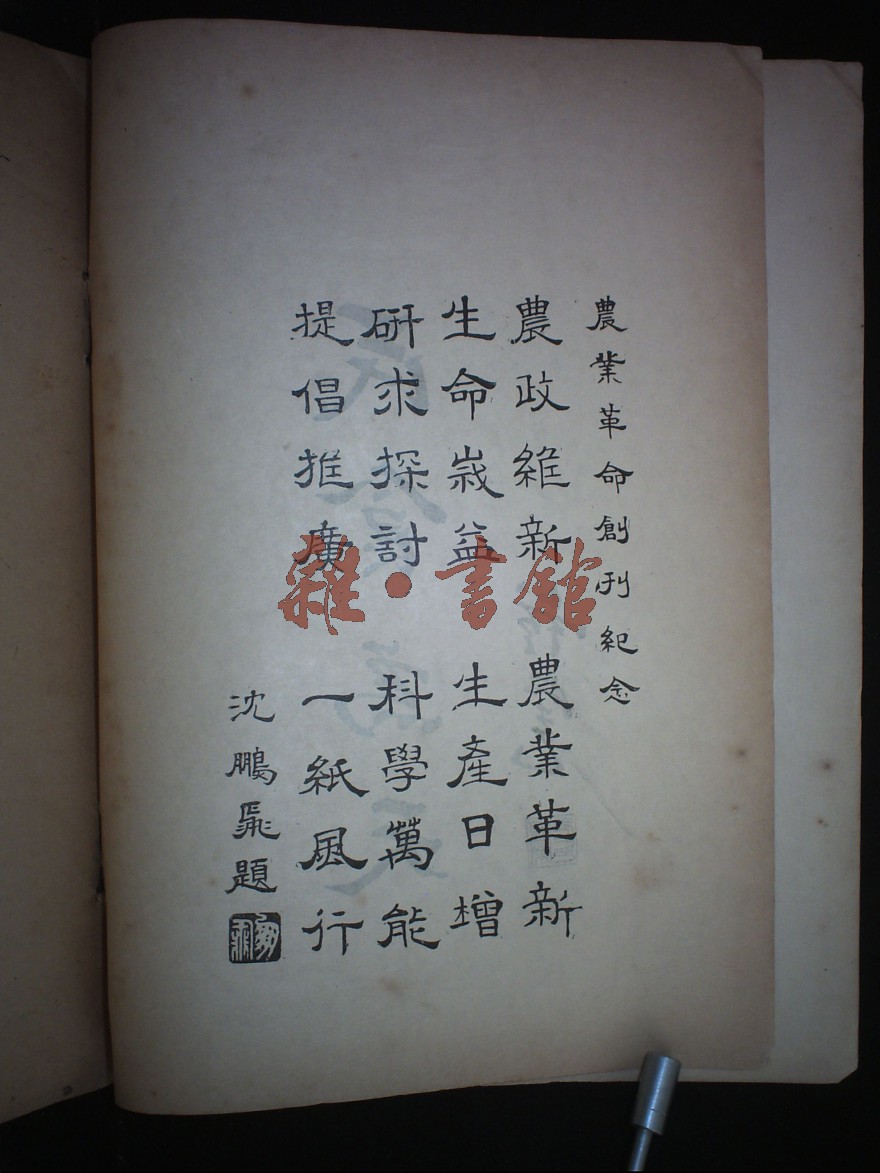 農業革命創刊紀念
農政維新 農業革新
生命嵗益 生產日增
研求探討 科學萬能
提倡推廣 一紙風行
沈鵬飛題
雜·書館